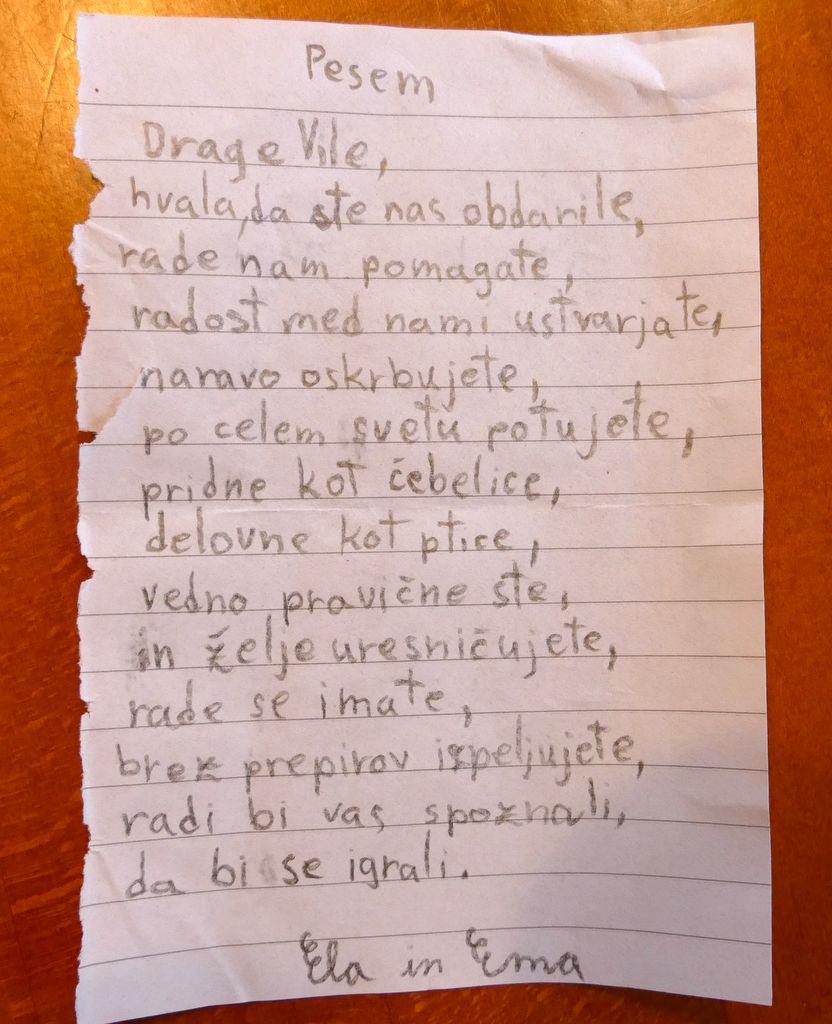 Pesem
Drage Vile,
hvala, da ste nas obdarile,
rade nam pomagate,
radost med nami ustvarjate,
naravo oskrbujete,
po celem svetu potujete,
pridne kot čebelice,
delovne kot ptice,
vedno pravične ste,
in želje uresničujete,
rade se imate,
brez prepirov izpeljujete,
radi bi vas spoznali,
da bi se igrali.
Ela in Ema